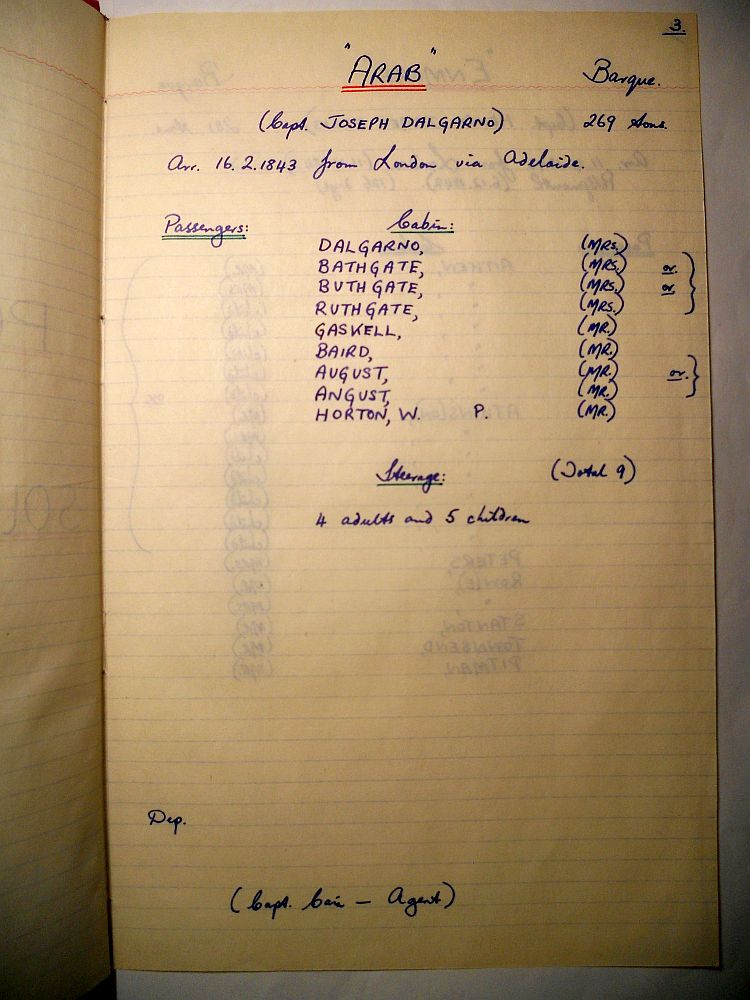 3.
"ARAB" Barque.
(Capt. JOSEPH DALGARNO) 269 tons.
Arr. 16.2.1843 from London via Adelaide.
Passengers: Cabin:
DALGARNO, (MRS.)
BATHGATE, (MRS.) or
BUTHGATE, (MRS.) or
RUTHGATE, (MRS.)
GASKELL, (MR.)
BAIRD, (MR.)
AUGUST, (MR.) or
ANGUST, (MR.)
HORTON, W. P. (MR.)
Steerage: (Total 9)
4 adults and 5 children
Dep.
(Capt. Cain — Agent)